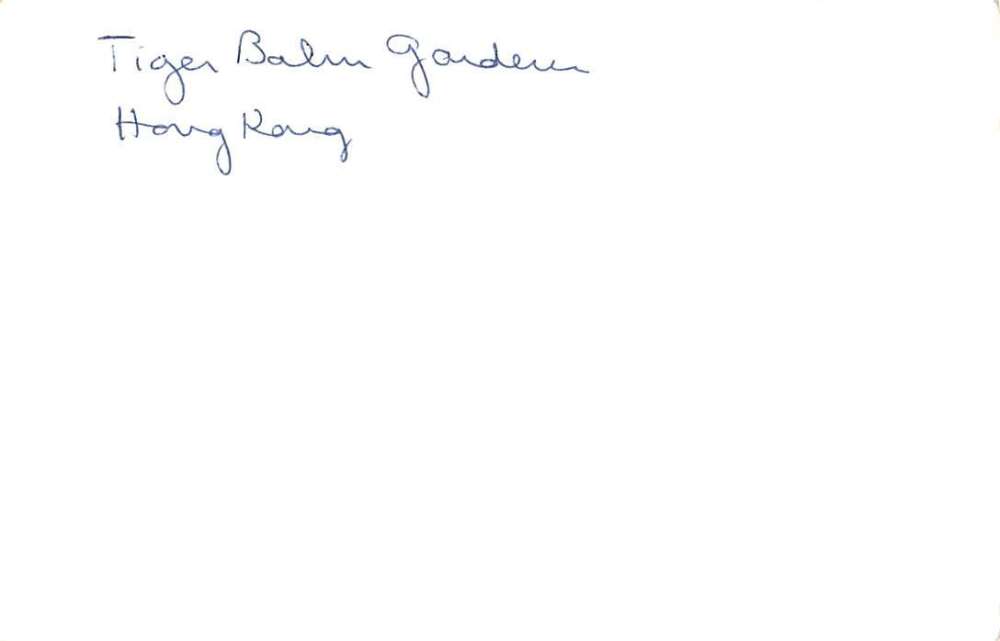 Tiger Balm Garden
Hong Kong